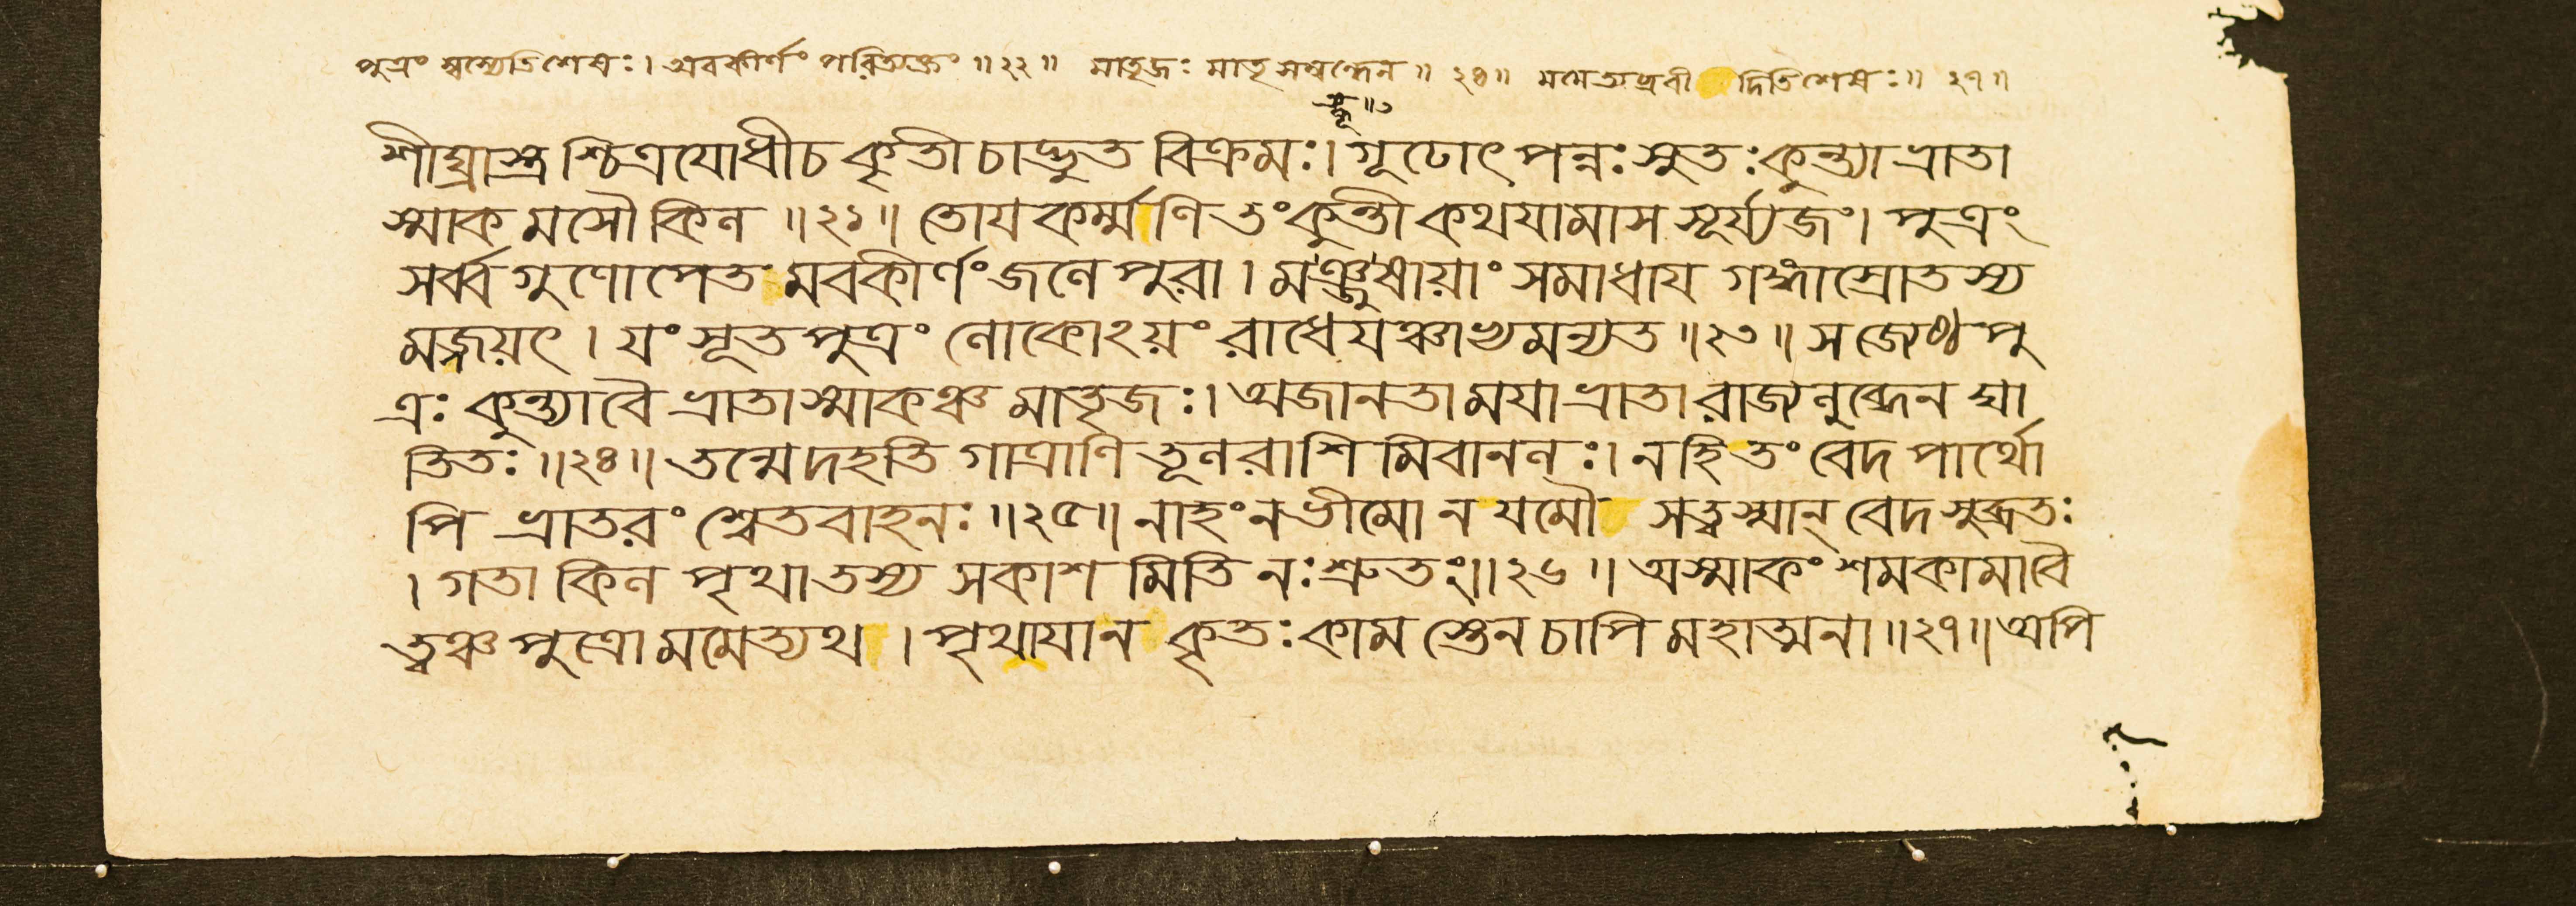 পুত্রং স্বস্যেতিশেষঃ। অবকীর্ণং পরিত্যক্তং ॥২২॥ মাতৃজঃ মাতৃসম্বন্ধেন॥ ২৪॥ মমেত্যব্রবী দিতিশেষঃ॥ ২৭॥
শীঘ্রাস্ত্রশ্চিত্রযোধীচ কৃতী চাদ্ভুত বিক্রমঃ। গূঢোৎপন্নঃ সুতঃ কুন্ত্যা ভ্রাতা
স্মাকমসৌকিল ॥২১॥ তোয়কর্ম্মণি তং কুন্তী কথযামাস সূর্য্যজং। পুত্রং
সর্ব্বগুণোপেতমবকীর্ণং জলে পুরা। মঞ্জুষায়াং সমাধায গঙ্গাস্রোতস্য
মজ্জয়ৎ। যং সূতপুত্রং লোকোঽয়ং রাধেযঞ্চাভ্যমন্যত ॥২৩॥ স জ্যেষ্ঠপু
ত্রঃ কুন্ত্যাবৈ ভ্রাতাস্মাকঞ্চ মাতৃজঃ। অজানতা মযা ভ্রাতা রাজ্যলুব্ধেন ঘা
তিতঃ ॥২৪॥ তন্মে দহতি গাত্রাণি তূলরাশিমিবানলঃ। নহি তং বেদ পার্থো
পি ভ্রাতরং শ্বেতবাহনঃ ॥২৫॥ নাহং নভীমো ন যমৌ সত্বস্মান্ বেদ সুব্রতঃ
। গতা কিল পৃথা তস্য সকাশমিতি নঃ শ্রুতং॥২৬॥ অস্মাকং শমকামাবৈ
ত্বঞ্চ পুত্রো মমেত্যথ। পৃথাযা ন কৃতঃ কামস্তেন চাপি মহাত্মনা ॥২৭॥ অপি